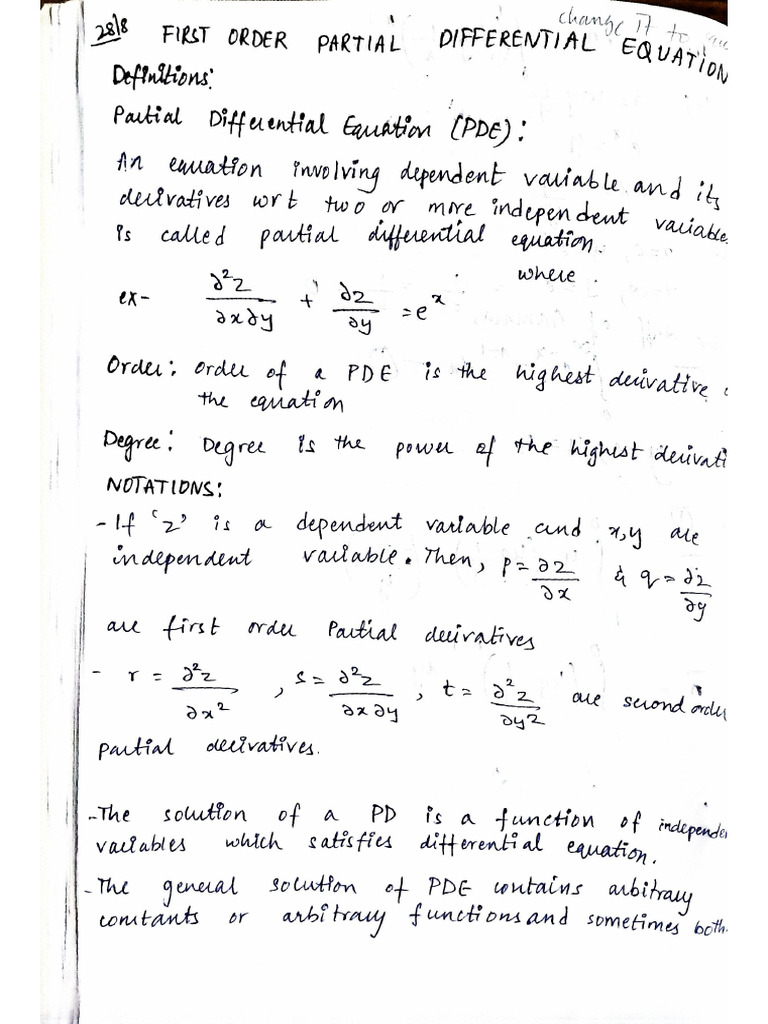 change it to
28/8 FIRST ORDER PARTIAL DIFFERENTIAL EQUATION
Definitions:
Partial Differential Equation (PDE):
An equation involving dependent variable and its
derivatives wrt two or more independent variable
is called partial differential equation.
where
ex- ∂²z/∂x∂y + ∂z/∂y = eˣ
Order: order of a PDE is the highest derivative
the equation
Degree: Degree is the power of the highest derivati
NOTATIONS:
- If 'z' is a dependent variable and x,y are
independent variable. Then, p = ∂z/∂x & q = ∂z/∂y
are first order Partial derivatives
- r = ∂²z/∂x², s = ∂²z/∂x∂y, t = ∂²z/∂y² are second order
partial derivatives.
- The solution of a PD is a function of independe
variables which satisfies differential equation.
- The general solution of PDE contains arbitrary
constants or arbitrary functions and sometimes both.